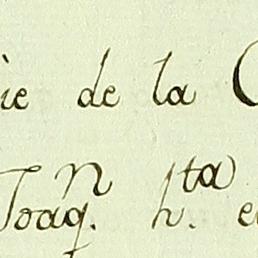 ie de la C
Joaqⁿ. hᵗᵃ. e